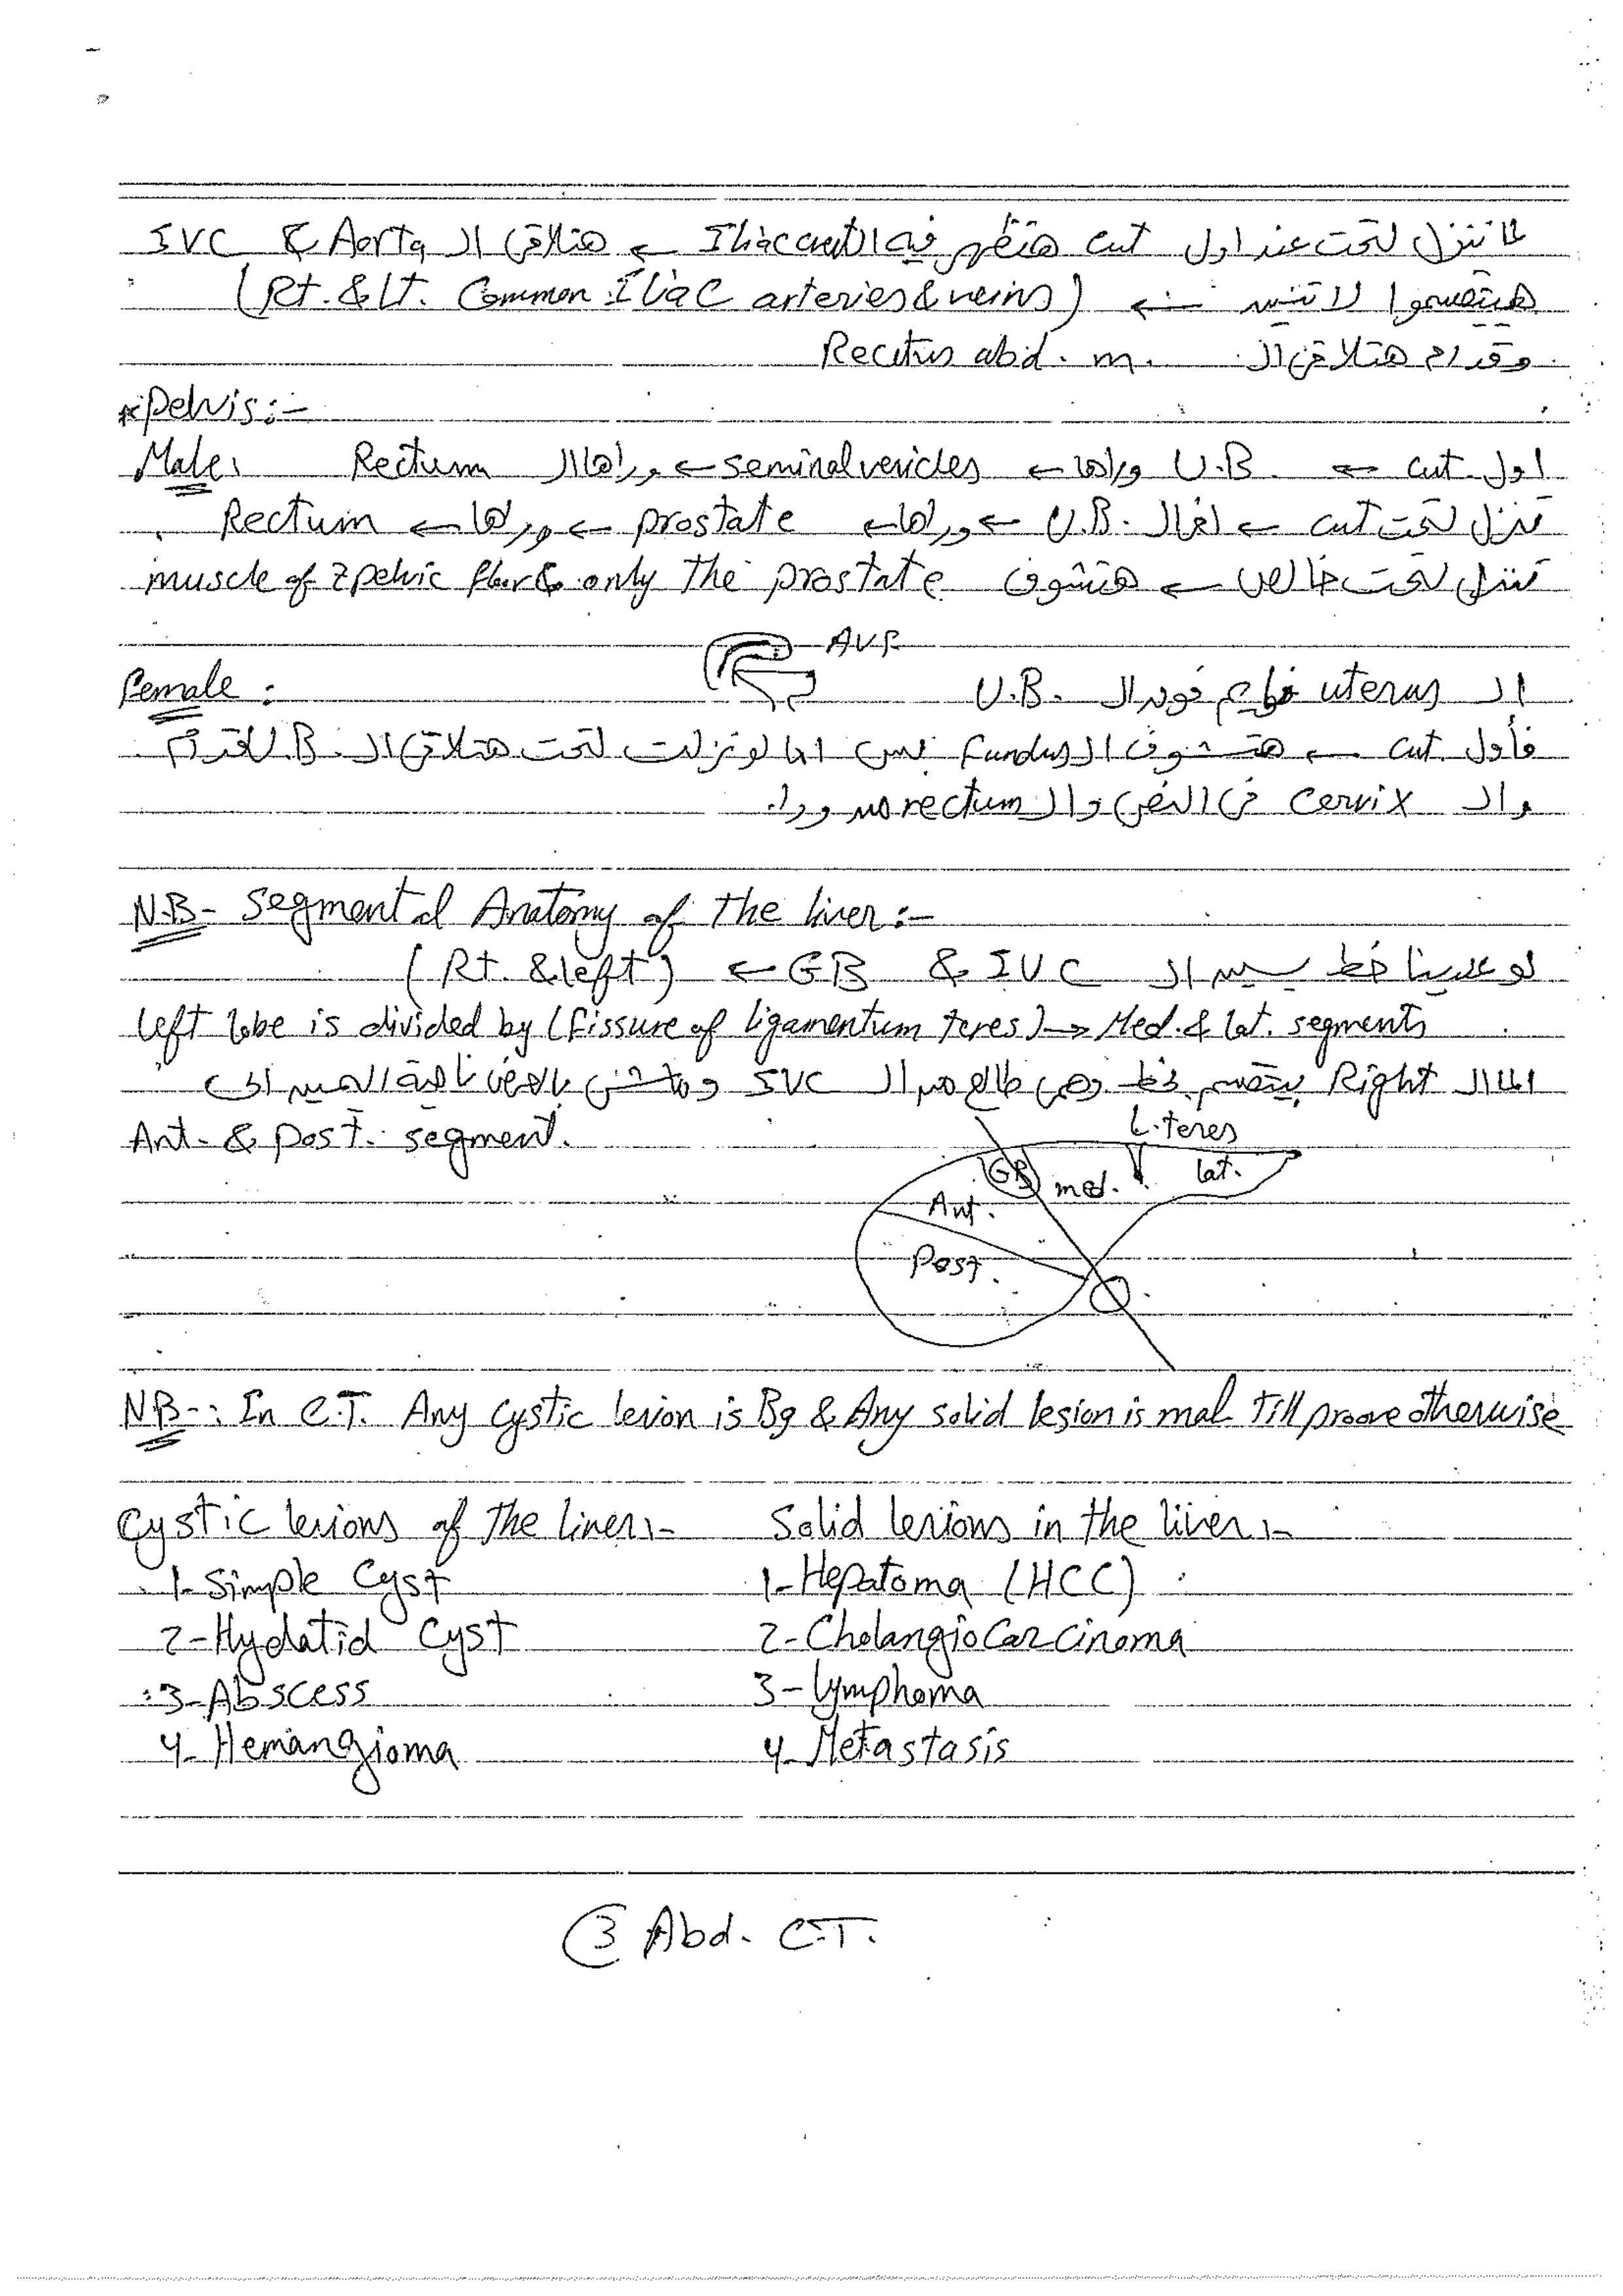 لما ننزل لتحت عند اول cut هتظهر فيه ال Iliac crest ← هتلاقى ال Aorta & IVC
هيتقسموا لاتنين ← (Rt. & Lt. Common Iliac arteries & veins)
وقدام هتلاقى ال Rectus abd. m.
* Pelvis :-
Male: اول cut ← U.B. وراها ← seminal vesicles ← وراها ال Rectum
تنزل تحت cut ← لغال U.B. ← وراها ← prostate ← وراها ← Rectum
تنزل لتحت خالص ← هتشوف muscle of z pelvic floor & only the prostate
AVF
Female : ال uterus نايم فوق ال U.B.
فأول cut ← هتشوف ال fundus بس اما لو نزلت لتحت هتلاقى ال U.B. قدام
وال cervix فى النص وال rectum من ورا.
N.B- Segmental Anatomy of the liver :-
لو عدينا خط بين ال IVC & GB ← (Rt. & left)
left lobe is divided by (fissure of ligamentum teres) → Med. & lat. segments
اما ال Right بيتقسم بخط وهمى طالع من ال IVC وماشى ناحية اليمين الى
Ant. & post. segment.
L. teres
GB med. lat.
Ant.
Post.
NB-: In C.T. Any cystic lesion is Bg & Any solid lesion is mal. Till proove otherwise
Cystic lesions of the liver:- Solid lesions in the liver:-
1- Simple Cyst 1- Hepatoma (HCC)
2- Hydatid Cyst 2- Cholangio Carcinoma
3- Abscess 3- lymphoma
4- Hemangioma 4- Metastasis
3 Abd. C.T.